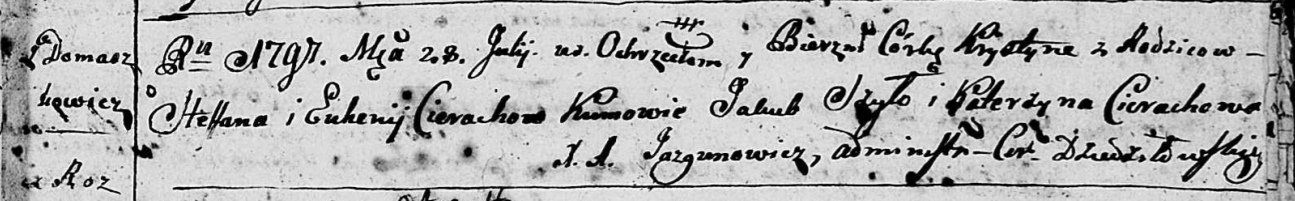 z Domasz
kowicz
Rᵘ 1797. Msca 28. Julij. ur. Ochrzciłem y Bierzm Córkę Krystynę z Rodzicow –
Steffana i Euhenij Cierachow Kumowie Jakub Szyło i Katerzyna Cierachowa
X. A. Jazgunowicz, administr– Cer. Dziedziłowskiej
Roz